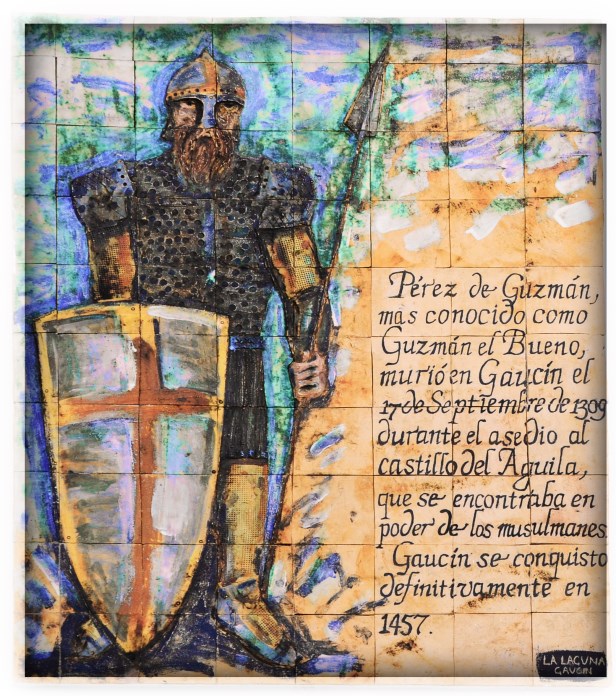 Pérez de Guzmán,
más conocido como
Guzmán el Bueno,
murió en Gaucín el
17 de Septiembre de 1309
durante el asedio al
castillo del Aguila,
que se encontraba en
poder de los musulmanes.
Gaucín se conquisto
definitivamente en
1457.
LA LACUNA
GAUCIN